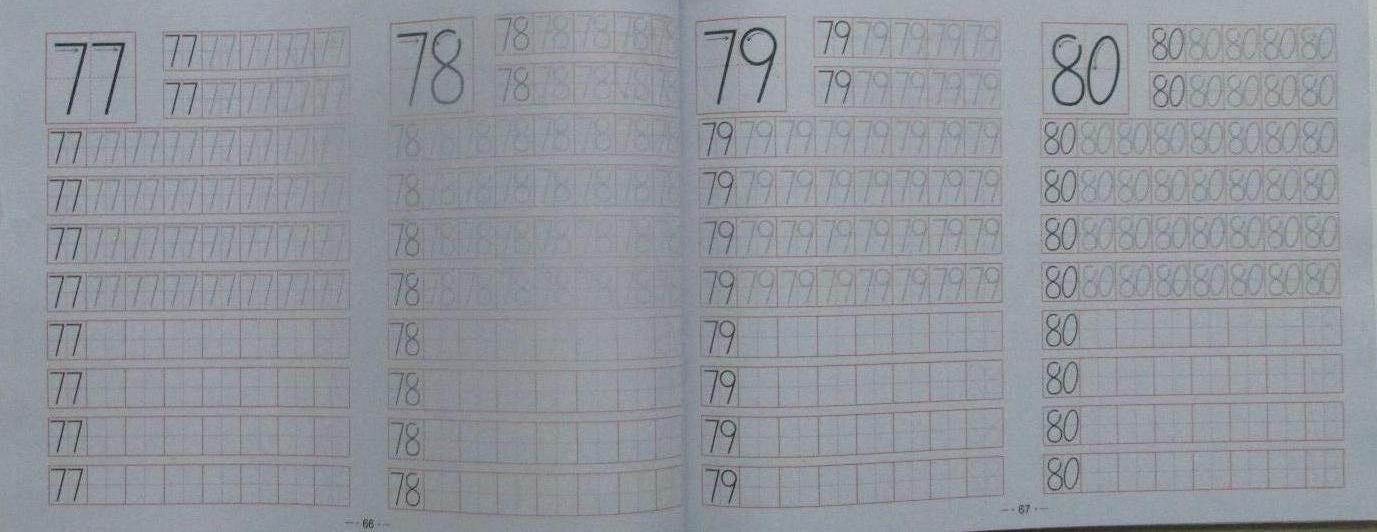 77
77 77 77 77 77
77 77 77 77 77
77 77 77 77 77 77 77 77
77 77 77 77 77 77 77 77
77 77 77 77 77 77 77 77
77 77 77 77 77 77 77 77
77
77
77
77
78
78 78 78 78 78
78 78 78 78 78
78 78 78 78 78 78 78 78
78 78 78 78 78 78 78 78
78 78 78 78 78 78 78 78
78 78 78 78 78 78 78 78
78
78
78
78
66
79
79 79 79 79 79
79 79 79 79 79
79 79 79 79 79 79 79 79
79 79 79 79 79 79 79 79
79 79 79 79 79 79 79 79
79 79 79 79 79 79 79 79
79
79
79
79
80
80 80 80 80 80
80 80 80 80 80
80 80 80 80 80 80 80 80
80 80 80 80 80 80 80 80
80 80 80 80 80 80 80 80
80 80 80 80 80 80 80 80
80
80
80
80
67